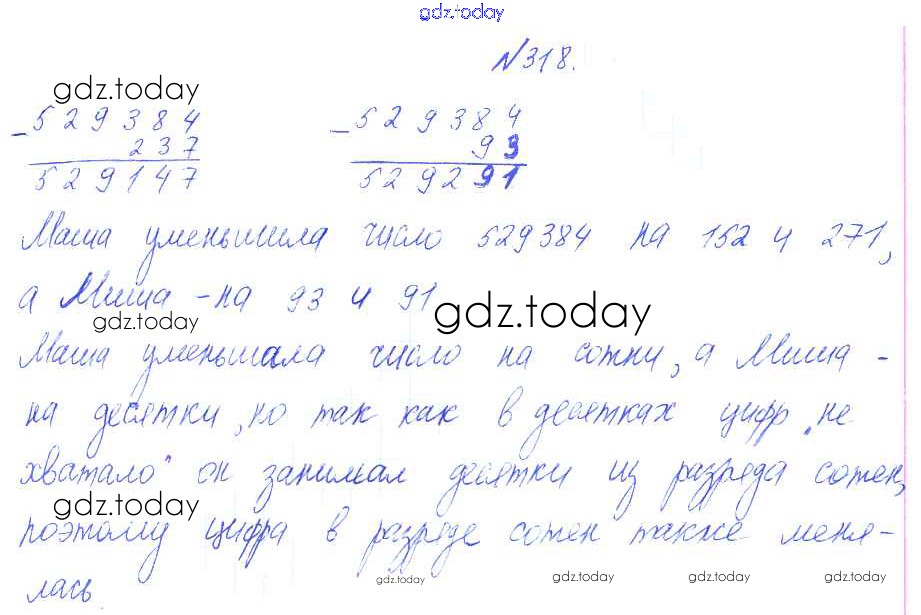 gdz.today
№318.
gdz.today
_529384 _529384
237 93
529147 529291
Маша уменьшила число 529384 на 152 и 271,
а Миша - на 93 и 91
gdz.today gdz.today
Маша уменьшала число на сотни, а Миша -
на десятки, но так как в десятках цифр „не
хватало" он занимал десятки из разряда сотен,
gdz.today
поэтому цифра в разряде сотен также меня-
лась
gdz.today gdz.today gdz.today